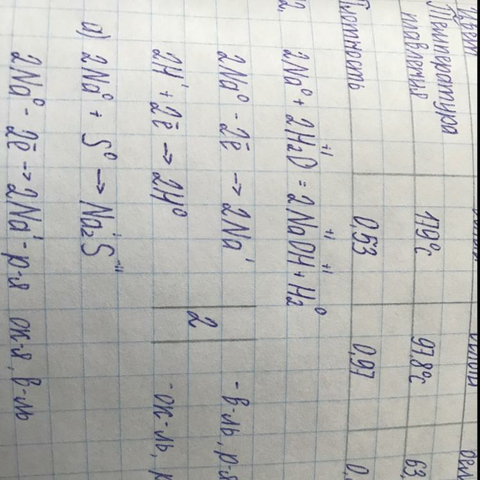 Температура плавления 179°C 97,8°C 63,
Плотность 0,53 0,97 0,
2Na⁰ + 2H₂⁺¹O = 2Na⁺¹OH⁺¹ + H₂⁰
2Na⁰ - 2ē → 2Na⁺ - в-ль, р-я
2H⁺ + 2ē → 2H⁰ 2 - ок-ль, р
а) 2Na⁰ + S⁰ → Na₂⁺S⁻ᴵᴵ
2Na⁰ - 2ē → 2Na⁺ - р-я ок-я, в-ль